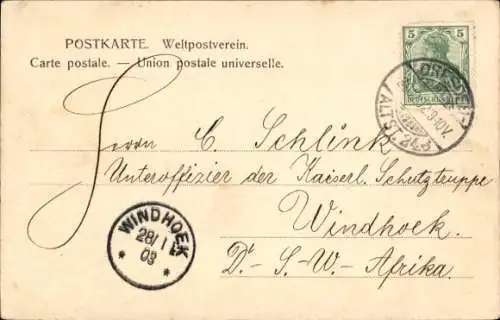 POSTKARTE. Weltpostverein.
Carte postale. — Union postale universelle.
5
DRESDEN
ALTST. 24.
Herrn C. Schlink
Unteroffizier der Kaiserl. Schutztruppe
Windhoek.
Dt.-S.-W.-Afrika.
WINDHOEK
28/1
03